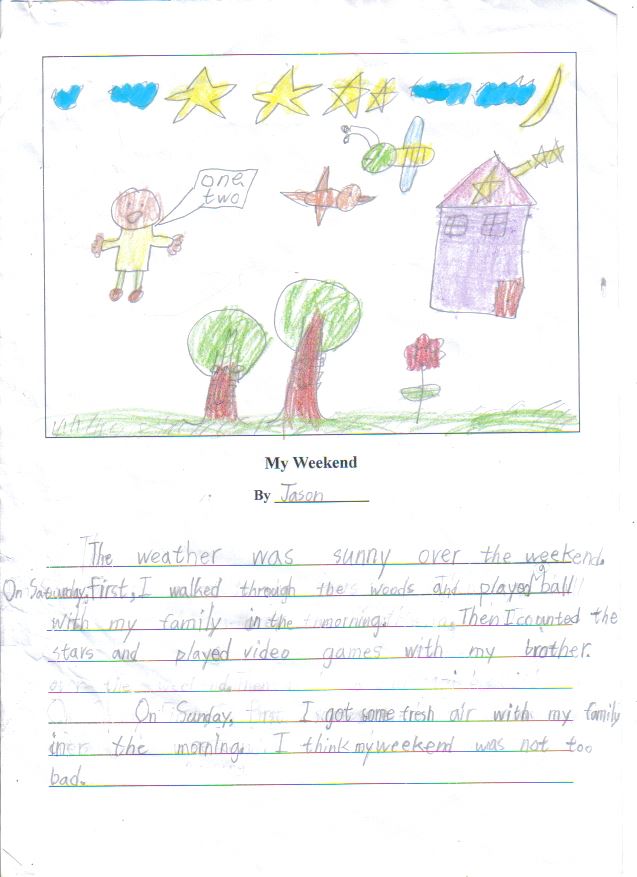 one
two
My Weekend
By Jason
The weather was sunny over the weekend.
On Saturday, First, I walked through the woods and played a ball
with my family in the morning. Then I counted the
stars and played video games with my brother.
On Sunday, I got some fresh air with my family
in the morning. I think my weekend was not too
bad.